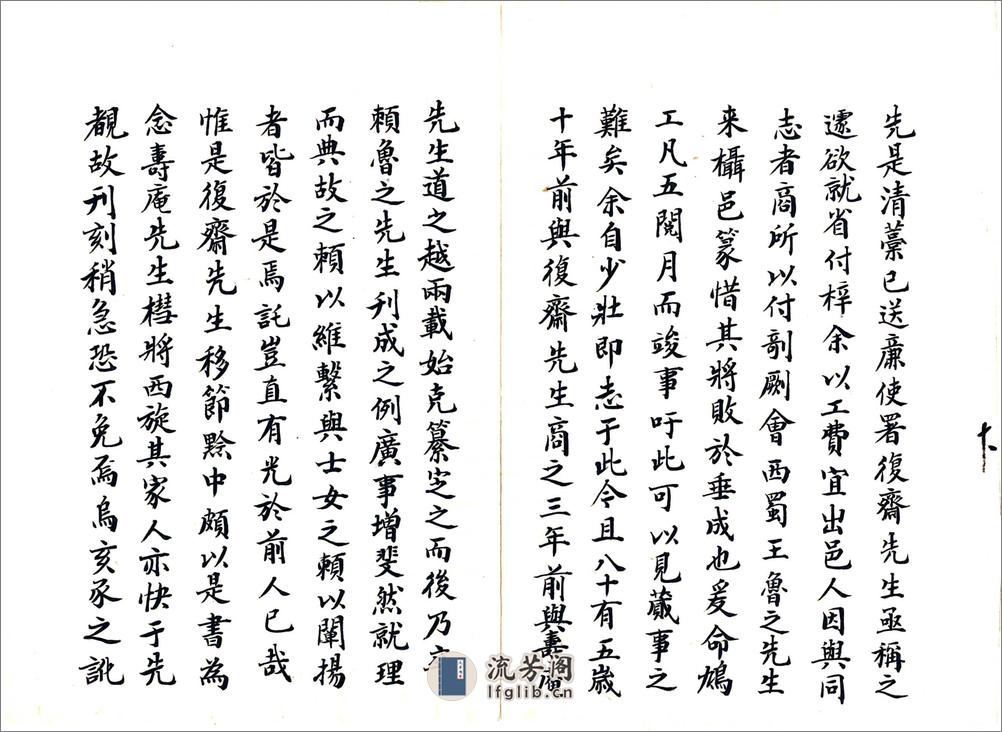 先是清藁已送廉使署復齋先生亟稱之
遽欲就省付梓余以工費宜出邑人因與同
志者商所以付剞劂會西蜀王魯之先生
来櫙邑篆惜其將敗於垂成也爰命鳩
工凡五閱月而竣事吁此可以見蕆事之
難矣余自少壯即志于此今且八十有五歲
十年前與復齋先生商之三年前與壽庵
先生道之越兩載始克纂定之而後乃
賴魯之先生刊成之例廣事增斐然就理
而典故之賴以維繫與士女之賴以闡揚
者皆於是焉託豈直有光於前人已哉
惟是復齋先生移節黔中頗以是書為
念壽庵先生櫘將西旋其家人亦快于先
覩故刊刻稍急恐不免焉烏亥豕之訛
流芳阁
lfglib.cn